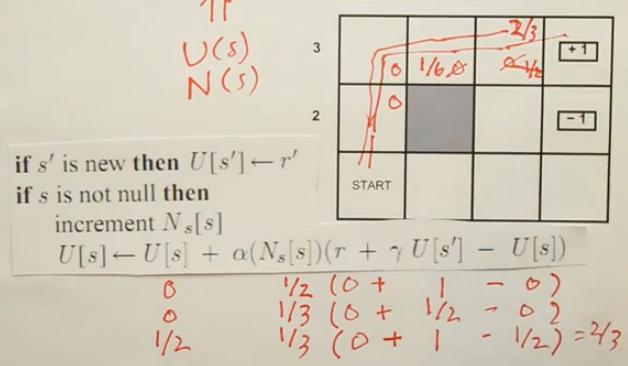 π
U(s)
N(s)
3
2/3
+1
0 1/6 0 0 1/2
2
0
-1
START
if s' is new then U[s'] ← r'
if s is not null then
increment Nₛ[s]
U[s] ← U[s] + α(Nₛ[s])(r + γ U[s'] − U[s])
0 1/2 (0 + 1 - 0)
0 1/3 (0 + 1/2 - 0)
1/2 1/3 (0 + 1 - 1/2) = 2/3